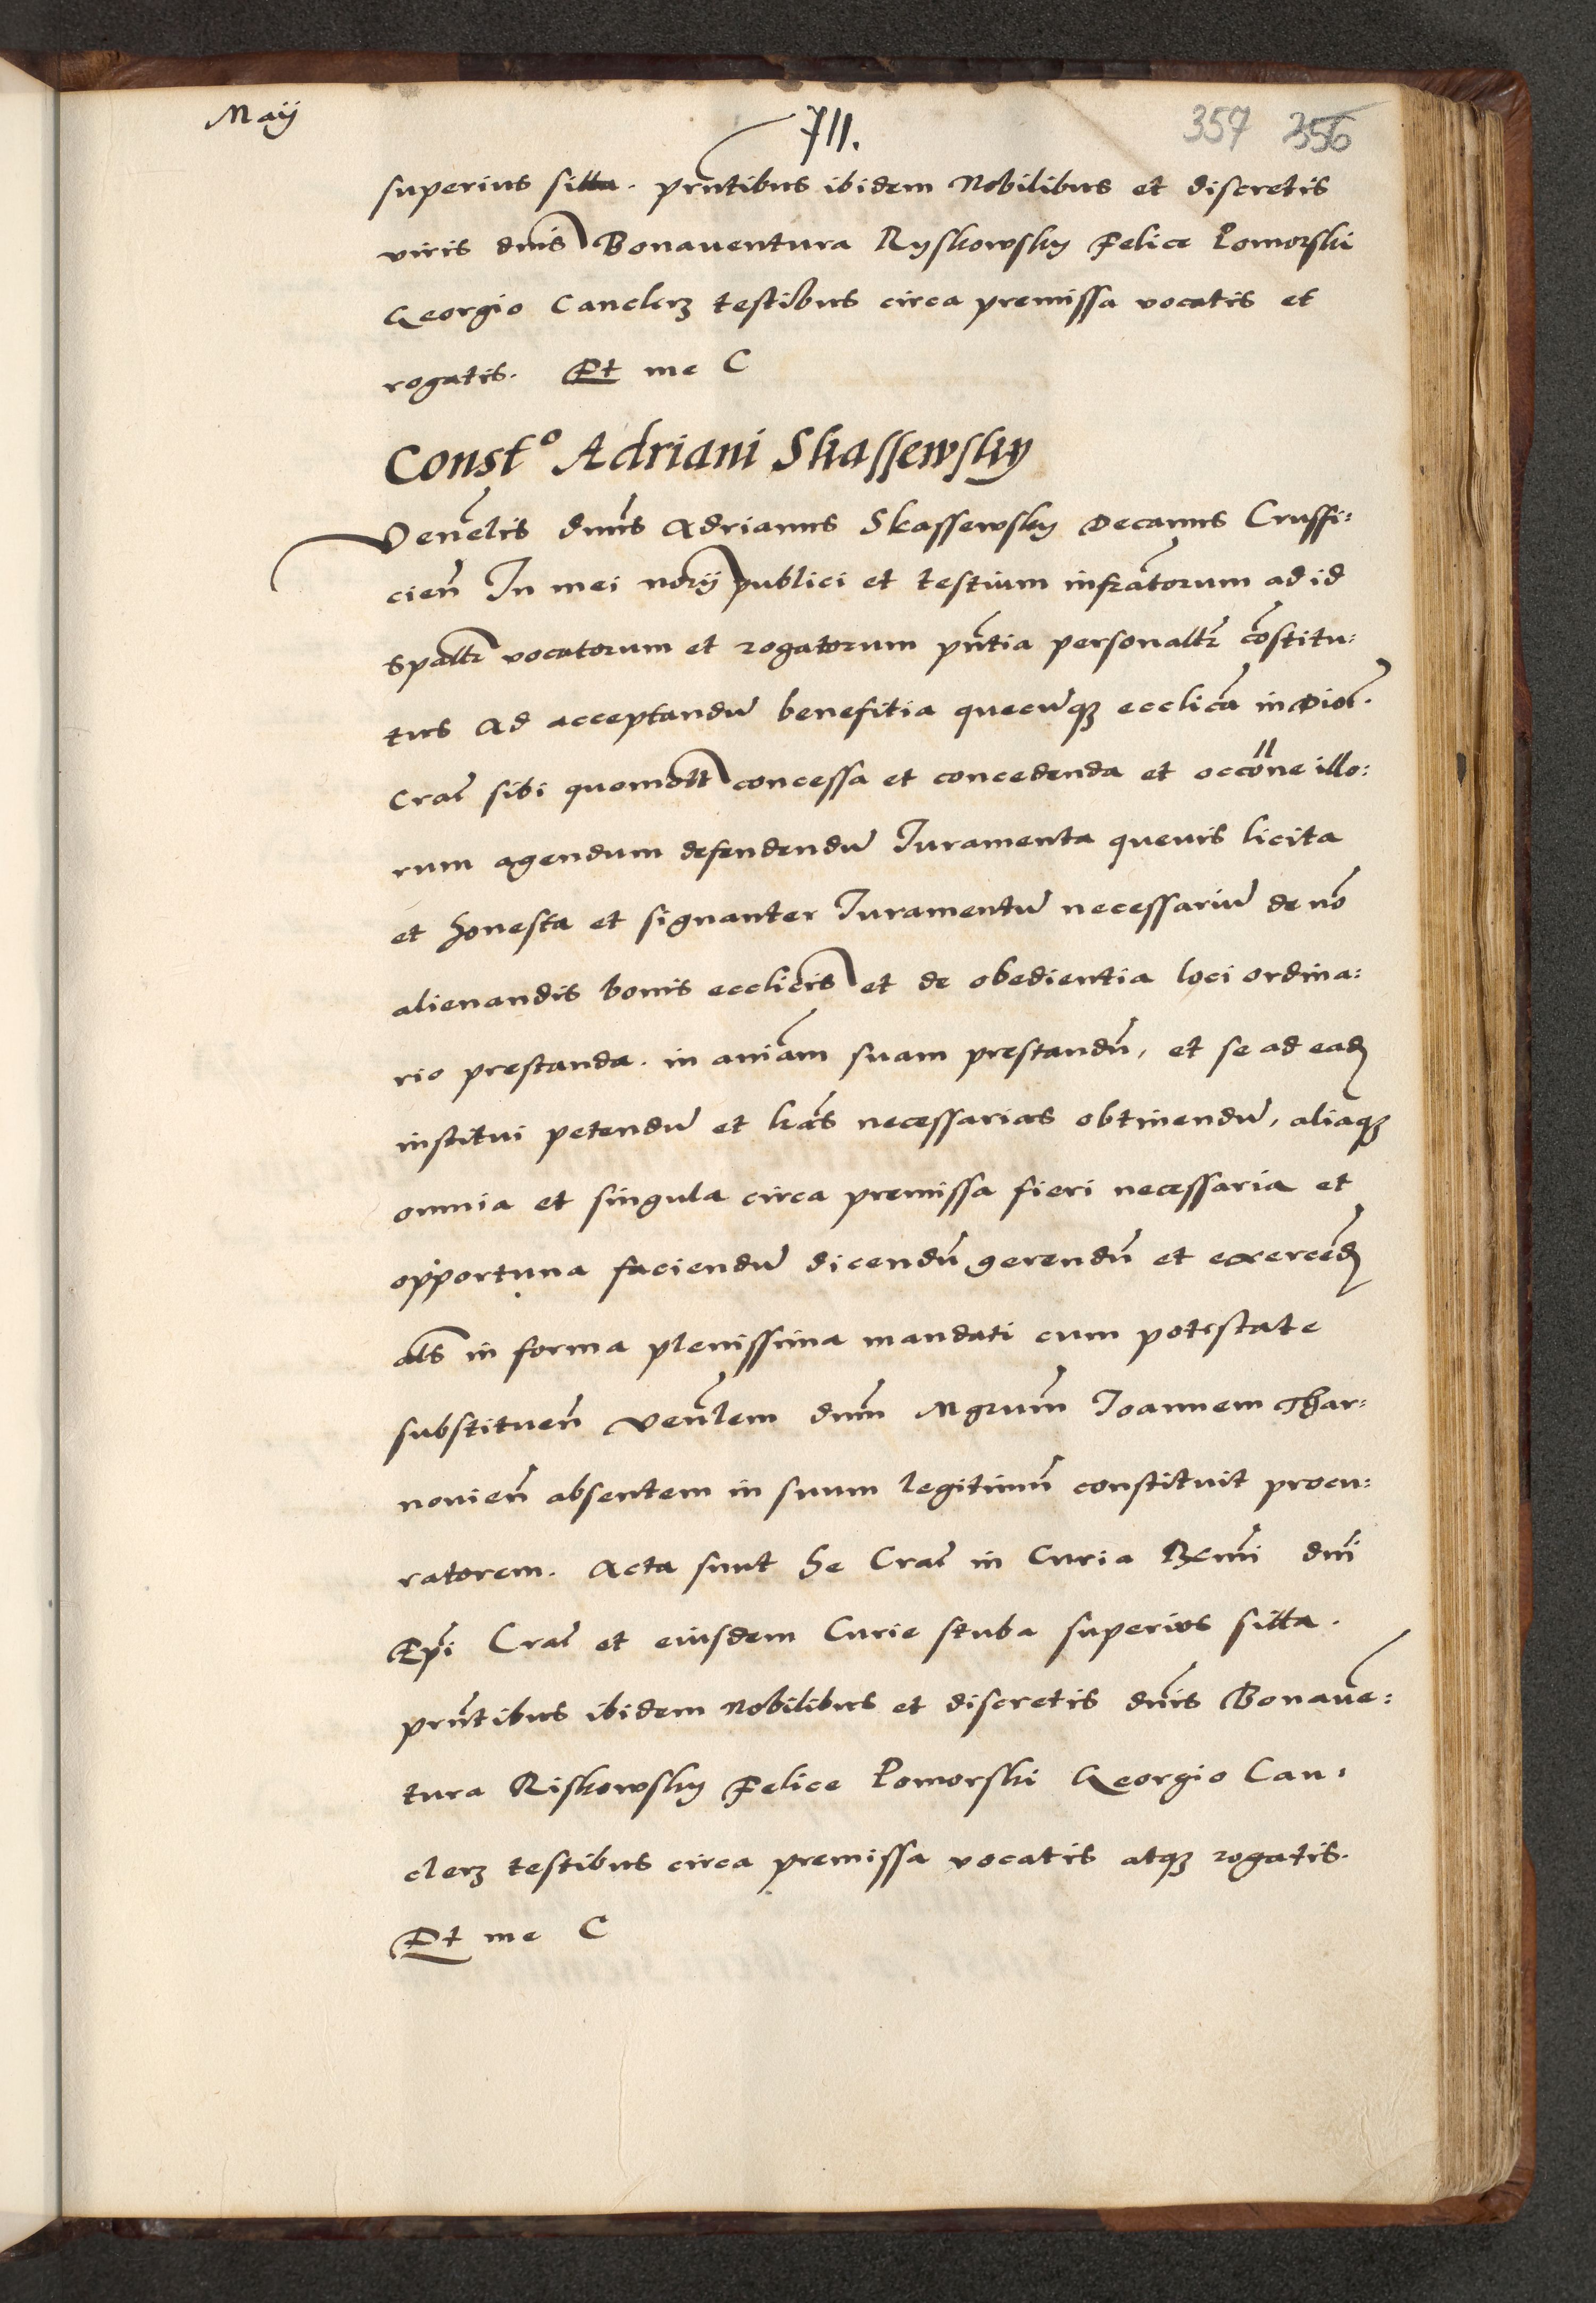 Maij
711.
357 356
superius sitta. prntibus ibidem Nobilibus et discretis
viris dnis Bonaventura Ryskowsky Felice Pomorski
Georgio Canclerz testibus circa premissa vocatis et
rogatis. Et me C
Const.º Adriani Skassewsky
Venelis dnus Adrianus Skassewsky Decanus Cruffi:
cien In mei norij publici et testium infratorum ad id
spaltr vocatorum et rogatorum pntia personaltr costitu:
tus Ad acceptandu benefitia quecuqz ecclica in Dioc.
Crac sibi quomolt concessa et concedenda et occone illo:
rum agendum defendendu Iuramenta quevis licita
et honesta et signanter Iuramentu necessariu de no
alienandis bonis ecclicis et de obedientia loci ordina:
rio prestanda. in aniam suam prestandu, et se ad ead
institui petendu et lras necessarias obtinendu, aliaqz
omnia et singula circa premissa fieri necessaria et
opportuna faciendu dicendu gerendu et exerced
als in forma plenissima mandati cum potestate
substituen venlem dnm Mgrum Ioannem Thar:
novien absentem in suum legitimu constituit procu:
ratorem. Acta sunt he Crac in Curia Rmi dni
Epi Crac et eiusdem Curie stuba superius sitta.
prntibus ibidem Nobilibus et discretis dnis Bonave:
tura Riskowsky Felice Pomorski Georgio Can:
clerz testibus circa premissa vocatis atqz rogatis.
Et me C